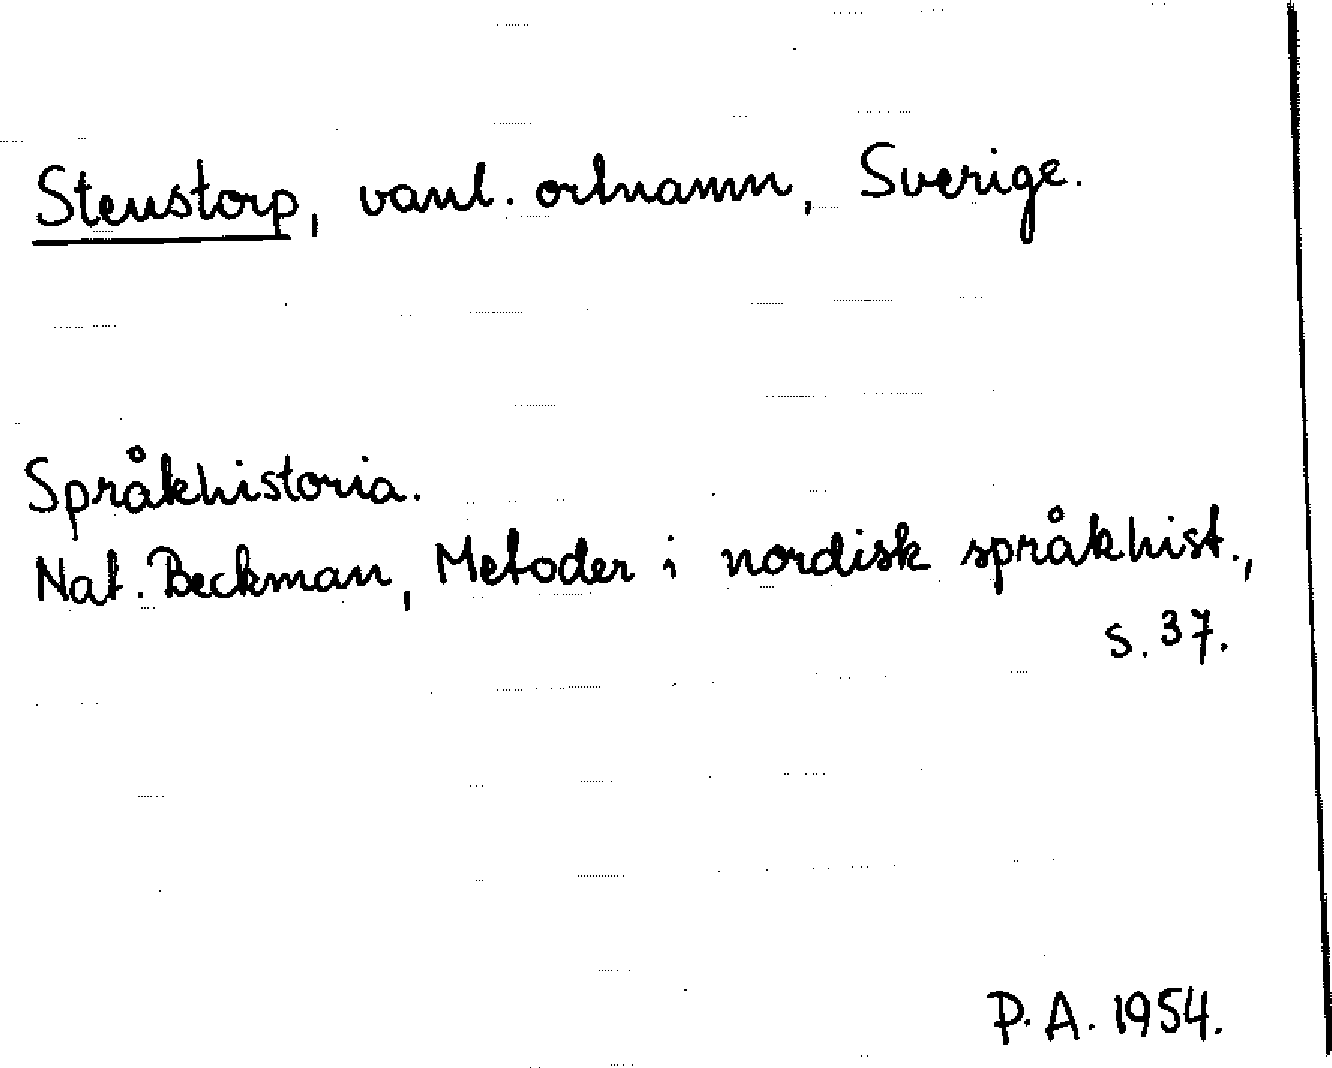 Stenstorp, vanl. ortnamn, Sverige.
Språkhistoria.
Nat. Beckman, Metoder i nordisk språkhist.,
s. 37.
P. A. 1954.